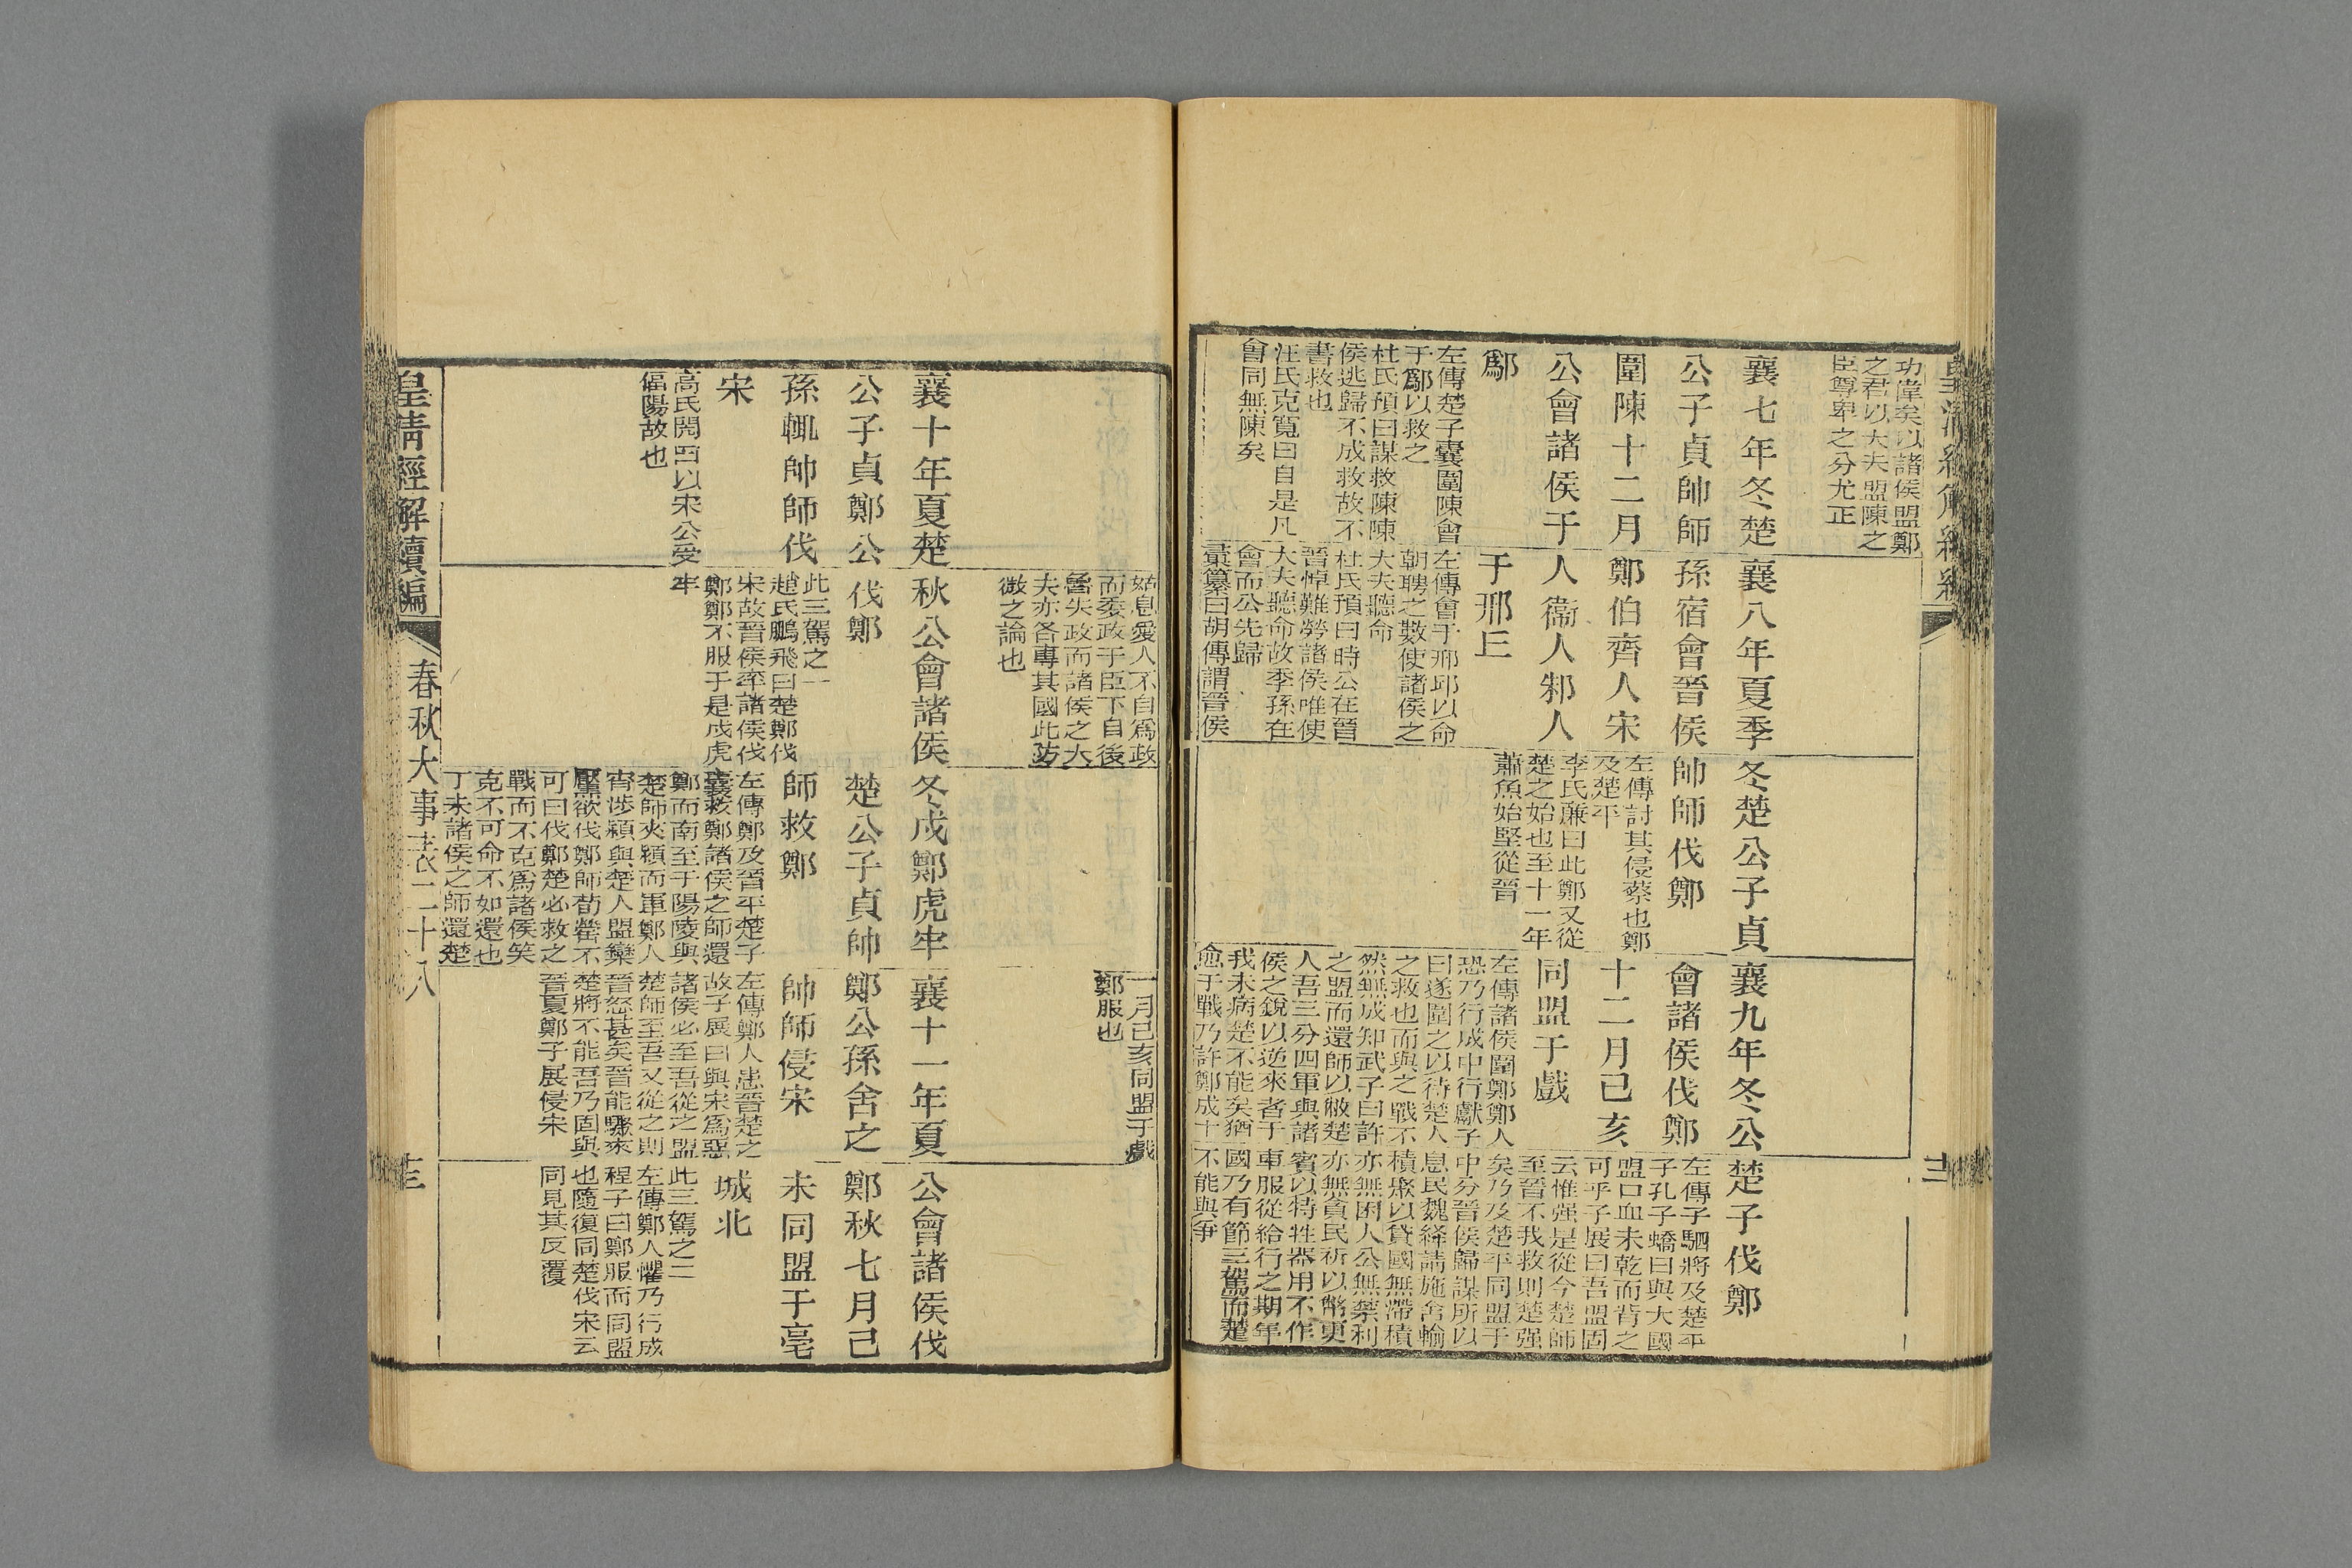 功偉矣以諸侯盟鄭
之君以大夫盟陳之
臣尊卑之分尤正
襄七年冬楚
公子貞帥師
圍陳十二月
公會諸侯于
鄬
左傳楚子囊圍陳會
于鄬以救之
杜氏預曰謀救陳陳
侯逃歸不成救故不
書救也
汪氏克寬曰自是凡
會同無陳矣
襄八年夏季
孫宿會晉侯
鄭伯齊人宋
人衞人邾人
于邢𠀉
左傳會于邢邱以命
朝聘之數使諸侯之
大夫聽命
杜氏預曰時公在晉
晉悼難勞諸侯唯使
大夫聽命故季孫在
會而公先歸
彙纂曰胡傳謂晉侯
冬楚公子貞
帥師伐鄭
左傳討其侵蔡也鄭
及楚平
李氏廉曰此鄭又從
楚之始也至十一年
蕭魚始堅從晉
襄九年冬公
會諸侯伐鄭
十二月己亥
同盟于戲
左傳諸侯圍鄭鄭人
恐乃行成中行獻子
曰遂圍之以待楚人
之救也而與之戰不
然無成知武子曰許
之盟而還師以敝楚
人吾三分四軍與諸
侯之銳以逆來者于
我未病楚不能矣猶
愈于戰乃許鄭成十
楚子伐鄭
左傳子駟將及楚平
子孔子蟜曰與大國
盟口血未乾而背之
可乎子展曰吾盟固
云惟强是從今楚師
至晉不我救則楚强
矣乃及楚平同盟于
中分晉侯歸謀所以
息民魏絳請施舍輸
積聚以貸國無滯積
亦無困人公無禁利
亦無貪民祈以幣更
賓以特牲器用不作
車服從給行之期年
國乃有節三駕而楚
不能與爭
姑息愛人不自爲政
而委政于臣下自後
魯失政而諸侯之大
夫亦各專其國此防
微之論也
一月己亥同盟于戲
鄭服也
襄十年夏楚
公子貞鄭公
孫輒帥師伐
宋
高氏閌曰以宋公受
偪陽故也
秋公會諸侯
伐鄭
此三駕之一
趙氏鵬飛曰楚鄭伐
宋故晉侯率諸侯伐
鄭鄭不服于是戍虎
牢
冬戍鄭虎牢
楚公子貞帥
師救鄭
左傳鄭及晉平楚子
囊救鄭諸侯之師還
鄭而南至于陽陵與
楚師夾潁而軍鄭人
宵涉潁與楚人盟欒
黶欲伐鄭師荀罃不
可曰伐鄭楚必救之
戰而不克爲諸侯笑
克不可命不如還也
丁未諸侯之師還楚
襄十一年夏
鄭公孫舍之
帥師侵宋
左傳鄭人患晉楚之
故子展曰與宋爲惡
諸侯必至吾從之盟
楚師至吾又從之則
晉怒甚矣晉能驟來
楚將不能吾乃固與
晉夏鄭子展侵宋
公會諸侯伐
鄭秋七月己
未同盟于亳
城北
此三駕之二
左傳鄭人懼乃行成
程子曰鄭服而同盟
也隨復同楚伐宋云
同見其反覆
皇清經解續編
春秋大事表二十八
十三